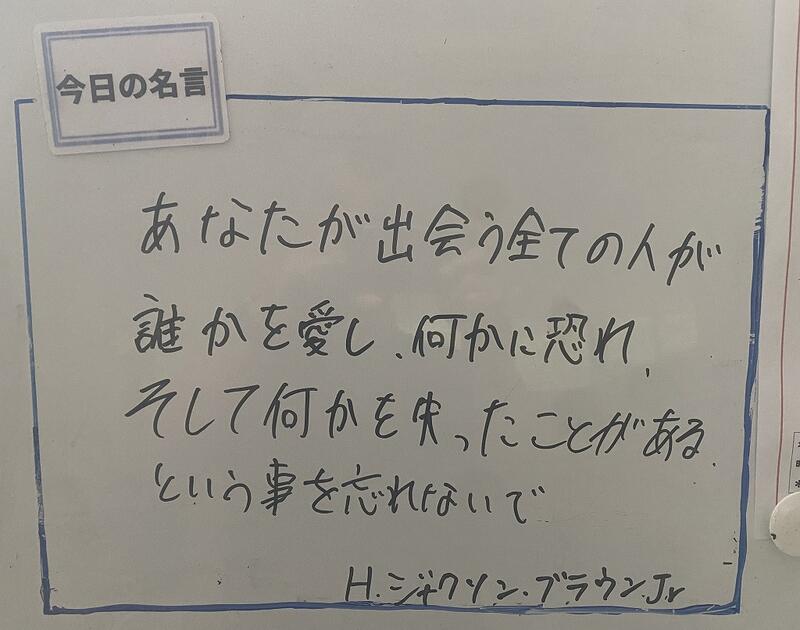 今日の名言
あなたが出会う全ての人が
誰かを愛し、何かに恐れ、
そして何かを失ったことがある、
という事を忘れないで
H.ジャクソン.ブラウンJr